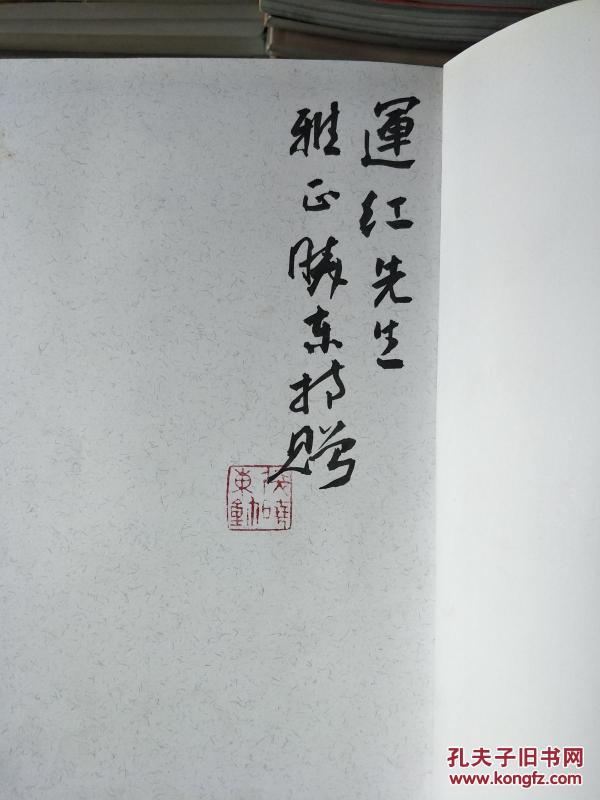 運红先生
雅正 晓东持赠
東動
孔夫子旧书网
www.kongfz.com